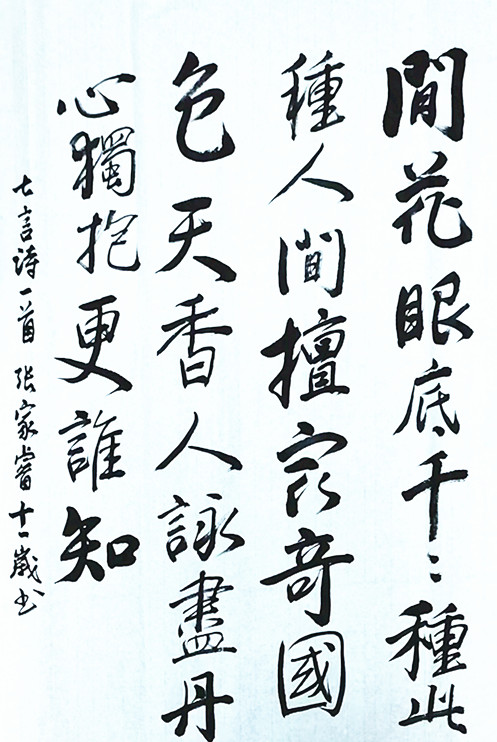 閒花眼底千〻種此
種人間擅最奇國
色天香人詠盡丹
心獨抱更誰知
七言詩一首 張家睿十一歲书